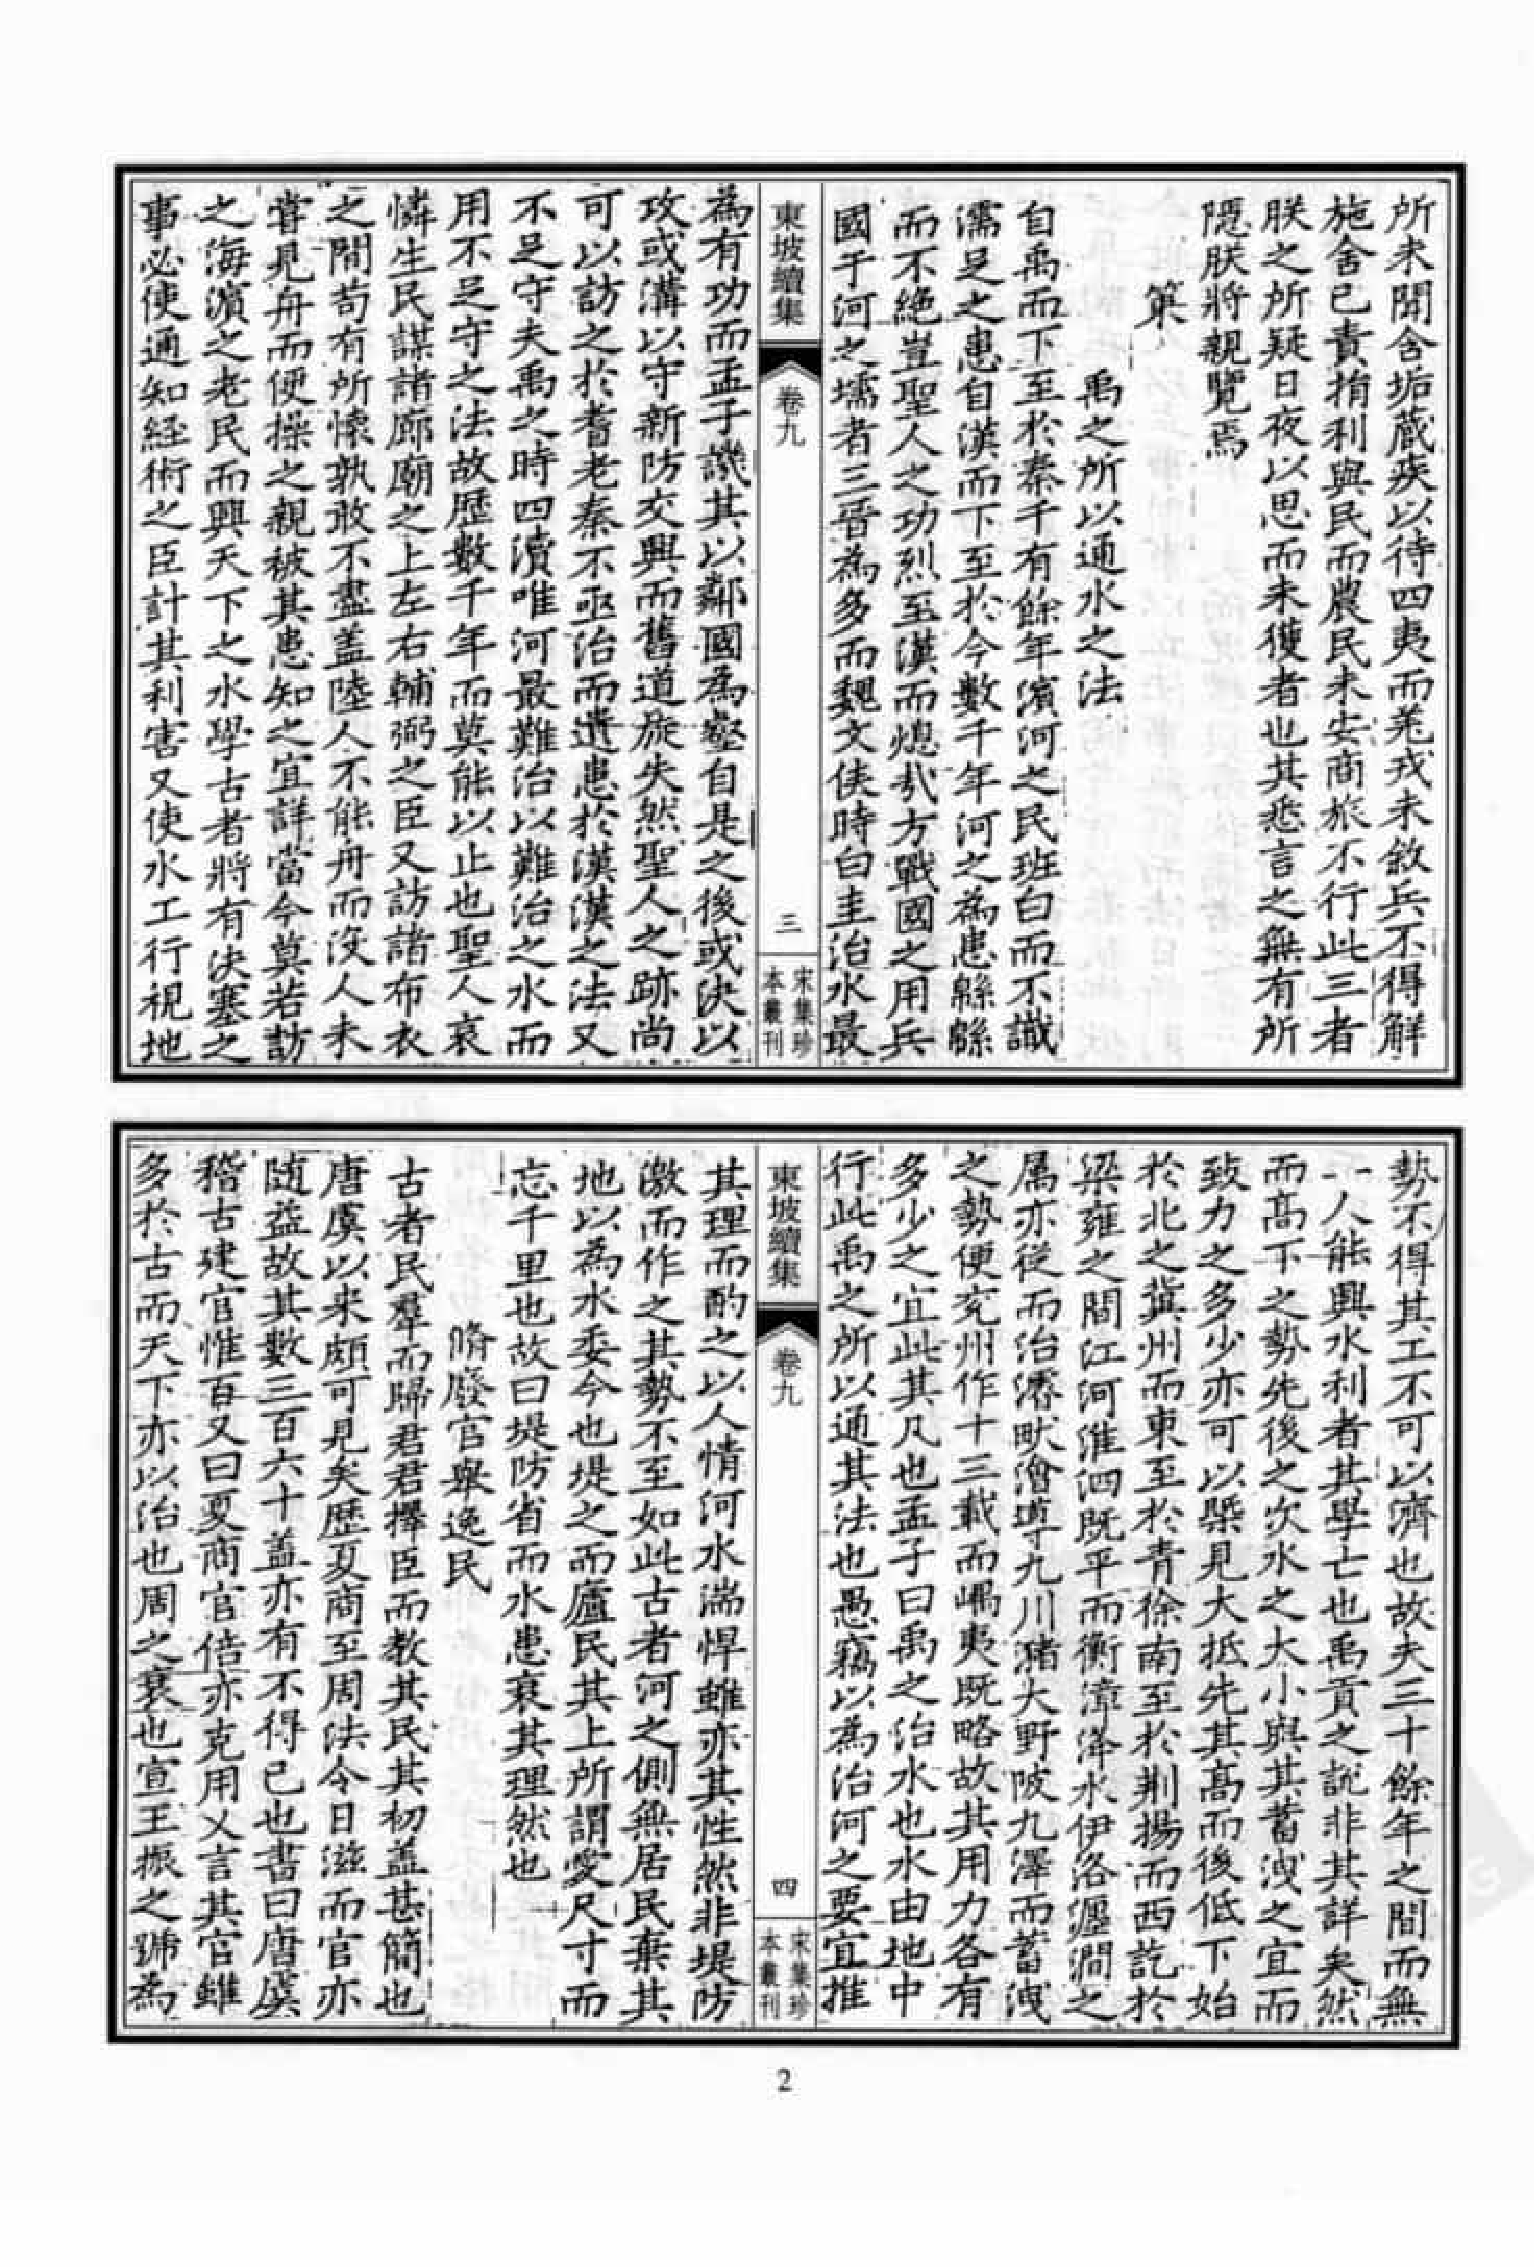 所未聞含垢蔵疾以待四夷而羌戎未敘兵不得解
施舍已責捐利與民而農民未安商旅不行此三者
朕之所疑日夜以思而未獲者也其悉言之無有所
隠朕將親覽焉
策
禹之所以通水之法
自禹而下至於秦千有餘年濱河之民班白而不識
濡足之患自漢而下至於今數千年河之為患緜緜
而不絕豈聖人之功烈至漢而熄㢤方戰國之用兵
國于河之壖者三晉為多而魏文侯時白圭治水最
東坡續集
卷九
三
宋集珍
本叢刊
為有功而孟子譏其以鄰國為壑自是之後或決以
攻或溝以守新防交興而舊道旋失然聖人之跡尚
可以訪之於耆老秦不亟治而遺患於漢漢之法又
不足守夫禹之時四瀆唯河最難治以難治之水而
用不足守之法故歷數千年而莫能以止也聖人哀
憐生民謀諸廊廟之上左右輔弼之臣又訪諸布衣
之間苟有所懷孰敢不盡盖陸人不能舟而沒人未
甞見舟而便操之親被其患知之宜詳當今莫若訪
之海濵之老民而興天下之水學古者將有決塞之
事必使通知経術之臣計其利害又使水工行視地
勢不得其工不可以濟也故夫三十餘年之間而無
一人能興水利者其學亡也禹貢之說非其詳矣然
而髙下之勢先後之次水之大小與其蓄洩之宜而
致力之多少亦可以槩見大抵先其髙而後低下始
於北之冀州而東至於青徐南至於荆揚而西訖於
梁雍之間江河淮泗既平而衡漳洚水伊洛瀍澗之
属亦從而治濬畎澮導九川瀦大野陂九澤而蓄洩
之勢便兖州作十三載而嵎夷既略故其用力各有
多少之宜此其凡也孟子曰禹之治水也水由地中
行此禹之所以通其法也愚竊以為治河之要宜推
東坡續集
卷九
四
宋集珍
本叢刊
其理而酌之以人情河水湍悍雖亦其性然非堤防
激而作之其勢不至如此古者河之側無居民棄其
地以為水委今也堤之而廬民其上所謂愛尺寸而
忘千里也故曰堤防省而水患衰其理然也
脩廢官舉逸民
古者民羣而歸君君擇臣而教其民其初盖甚簡也
唐虞以来頗可見矣歷夏商至周法令日滋而官亦
随益故其數三百六十盖亦有不得已也書曰唐虞
稽古建官惟百又曰夏商官倍亦克用乂言其官雖
多於古而天下亦以治也周之衰也宣王振之號為
2